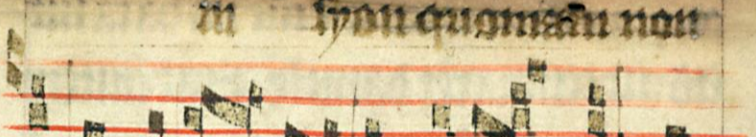 in syon quoniam non